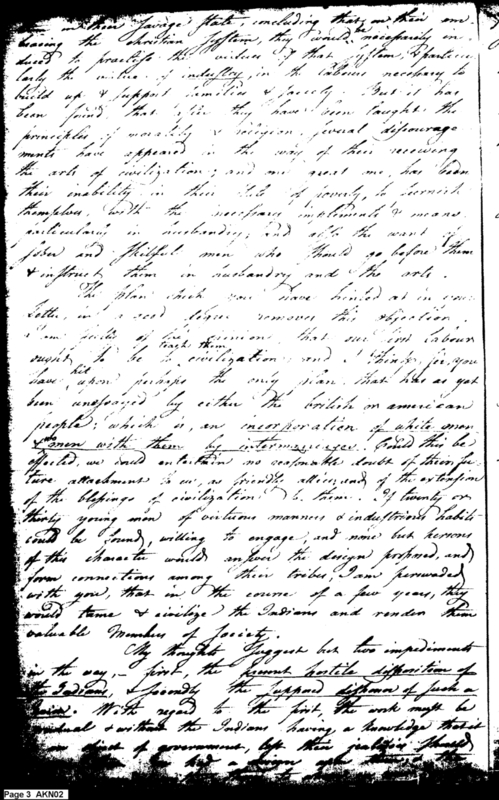 in their savage state, concluding that on their em
bracing the christian system, they would be necessarily in
duced to practise the virtues of that system, & particu
larly the virtue of industry, in the labours necessary to
build up & support families & society. But it has
been found that after they have been taught the
principles of morality & religion, several discourage
ments have appeared in the way of their receiving
the arts of civilization; and one great one, has been
their inability in their state of poverty, to furnish
themselves with the necessary implements & means
particularly in husbandry; and also the want of
sober and skilful men who should go before them
& instruct them in husbandry and the arts.
The plan which you have hinted at in your
Letter, in a good degree removes this objection.
I am of opinion that our first labour
ought to be to teach them civilization; and I think, sir, you
have hit upon perhaps the only plan that has as yet
been unessayed by either the british or american
people; which is, an incorporation of white men
& women with them by intermarriages. Could this be
effected, we could entertain no reasonable doubt of their fu
ture attachment to us, as friends, allies, and of the extension
of the blessings of civilization to them. If twenty or
thirty young men of virtuous manners & industrious habits
could be found, willing to engage, and none but persons
of this character would answer the design proposed, and
form connections among their tribes, I am persuaded
with you, that in the course of a few years, they
would tame & civilize the Indians and render them
valuable Members of Society.
My thoughts suggest but two impediments
in the way,- first, the present hostile disposition of
the Indians, & secondly the supposed dishonor of such a
Union. With regard to the first, the work must be
gradual & without the Indians having a knowledge that it
object of government, lest their jealousies should
be had a
Page 3 AKN02